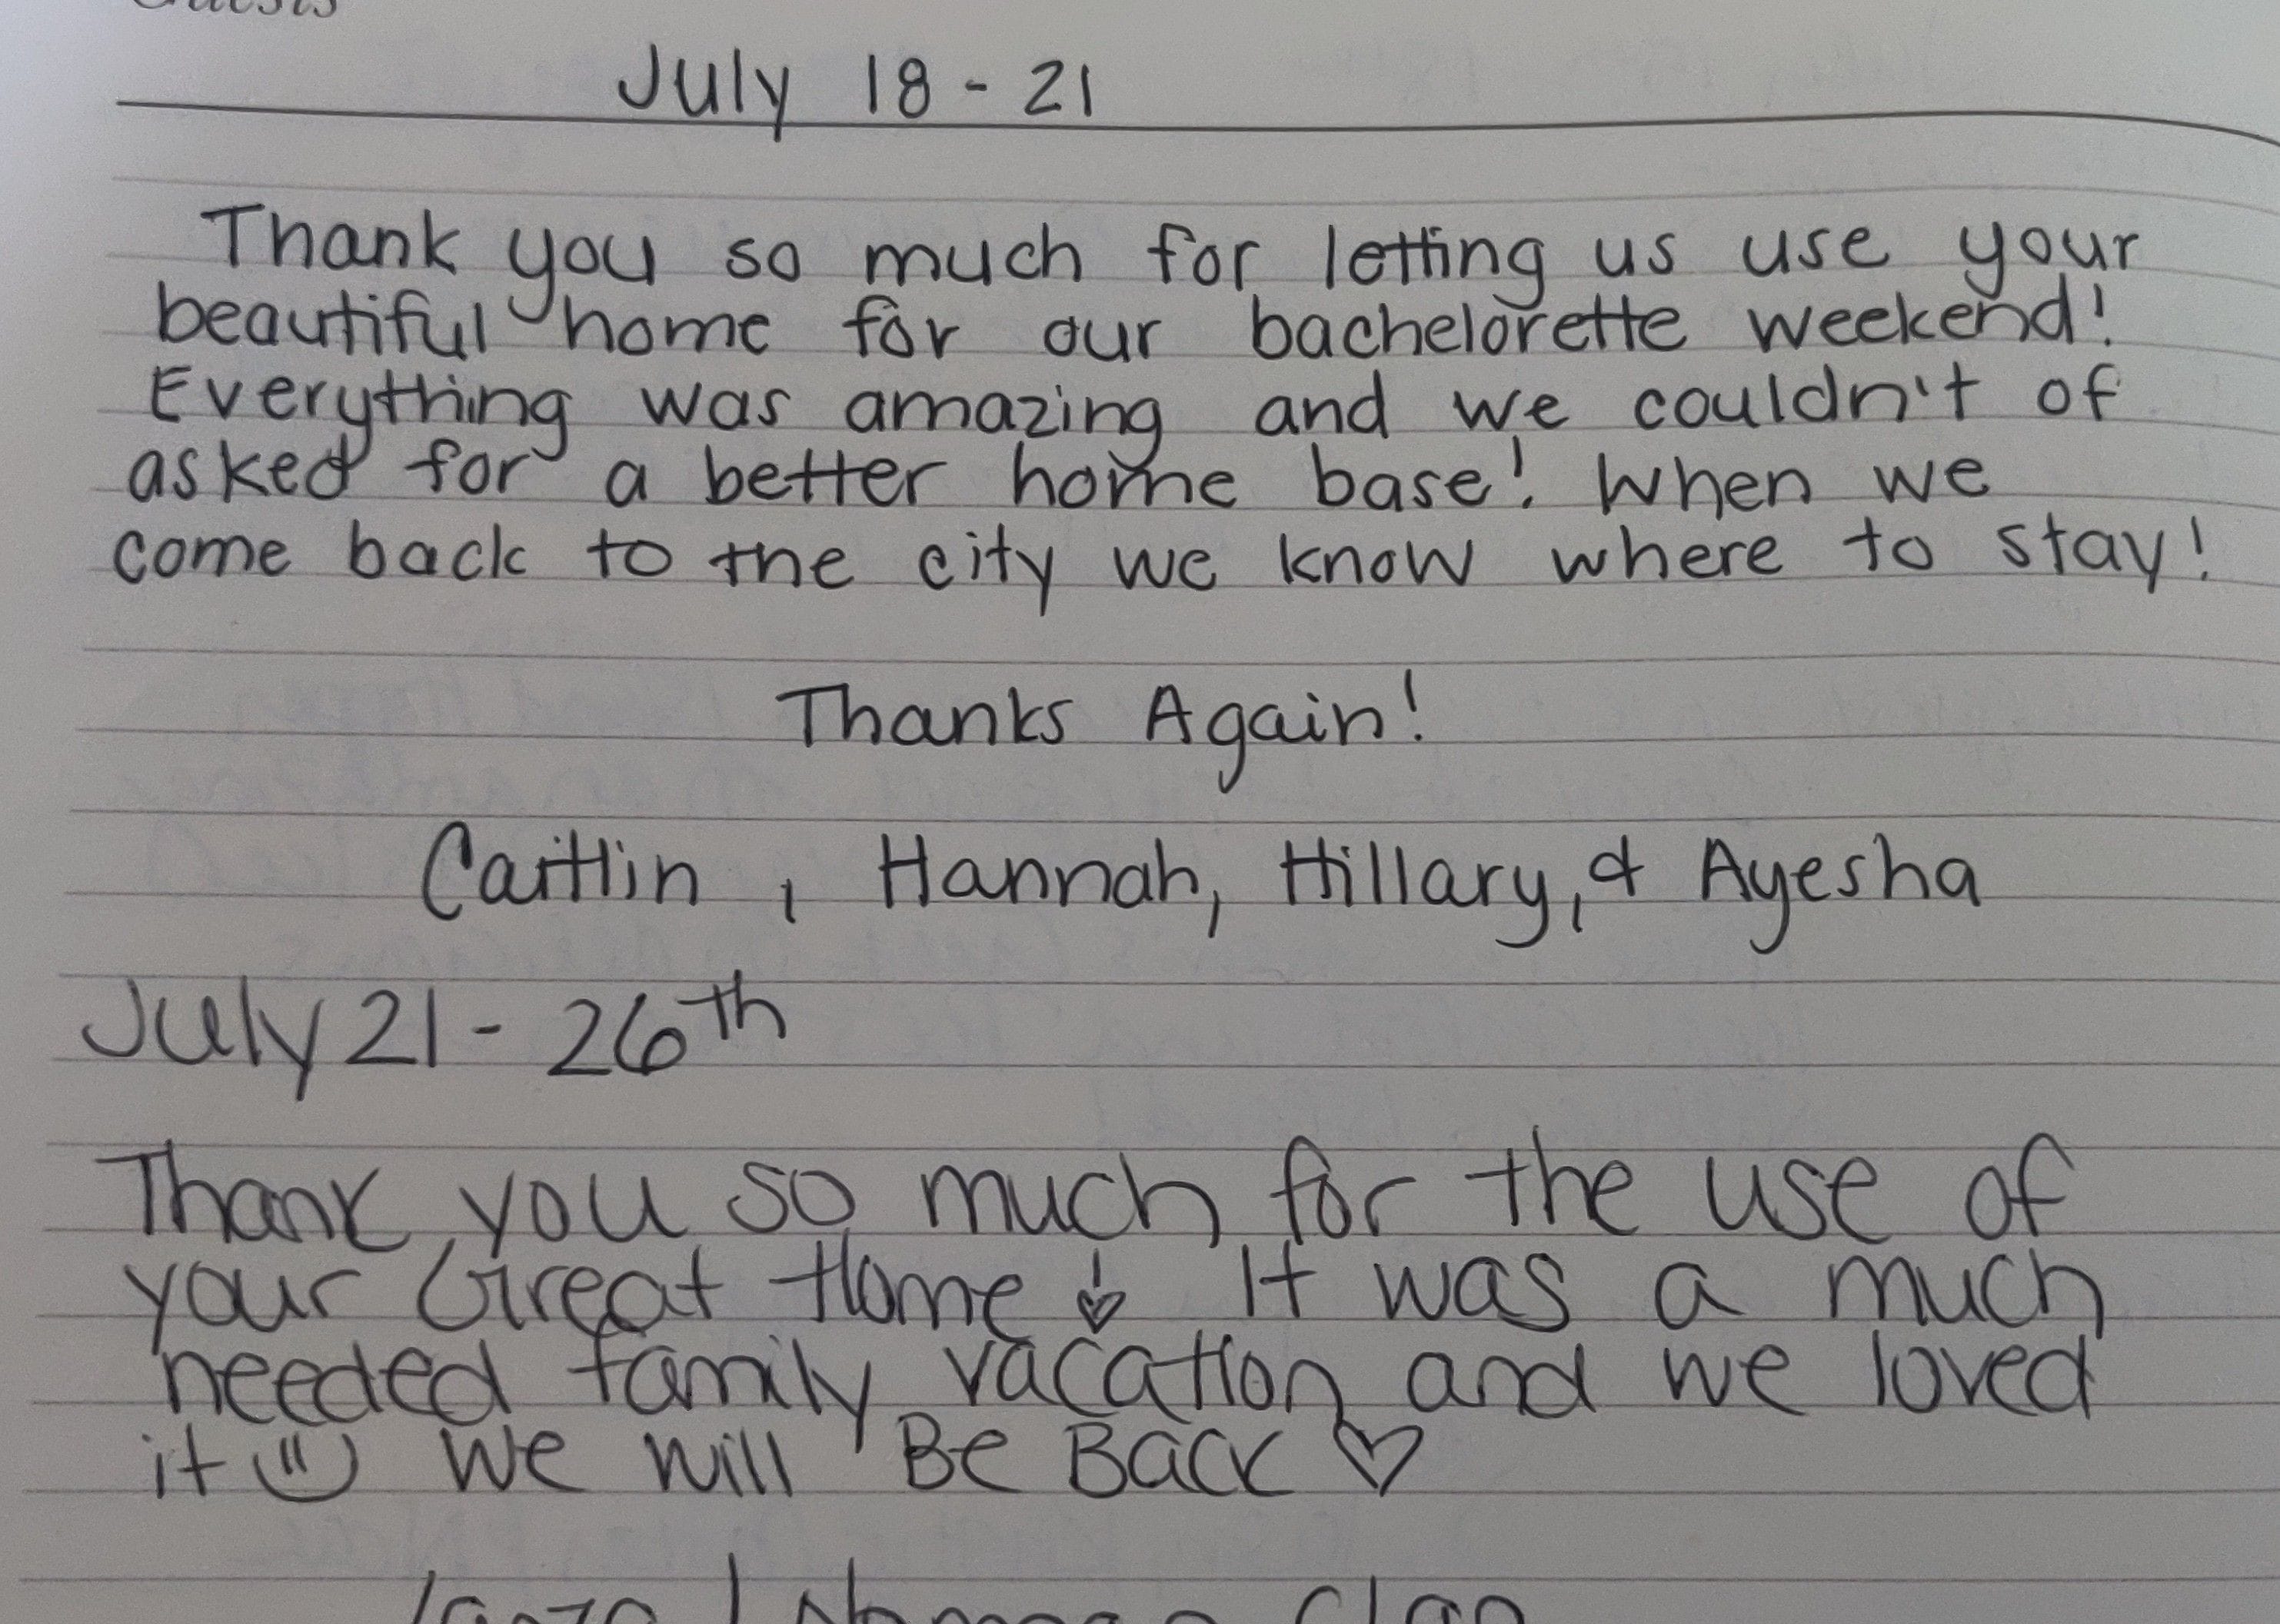 Guests
July 18 - 21
Thank you so much for letting us use your
beautiful home for our bachelorette weekend!
Everything was amazing and we couldn't of
asked for a better home base! When we
come back to the city we know where to stay!
Thanks Again!
Caitlin, Hannah, Hillary, & Ayesha
July 21 - 26th
Thank you so much for the use of
your Great Home! It was a much
needed family vacation and we loved
it we will Be Back
Clan